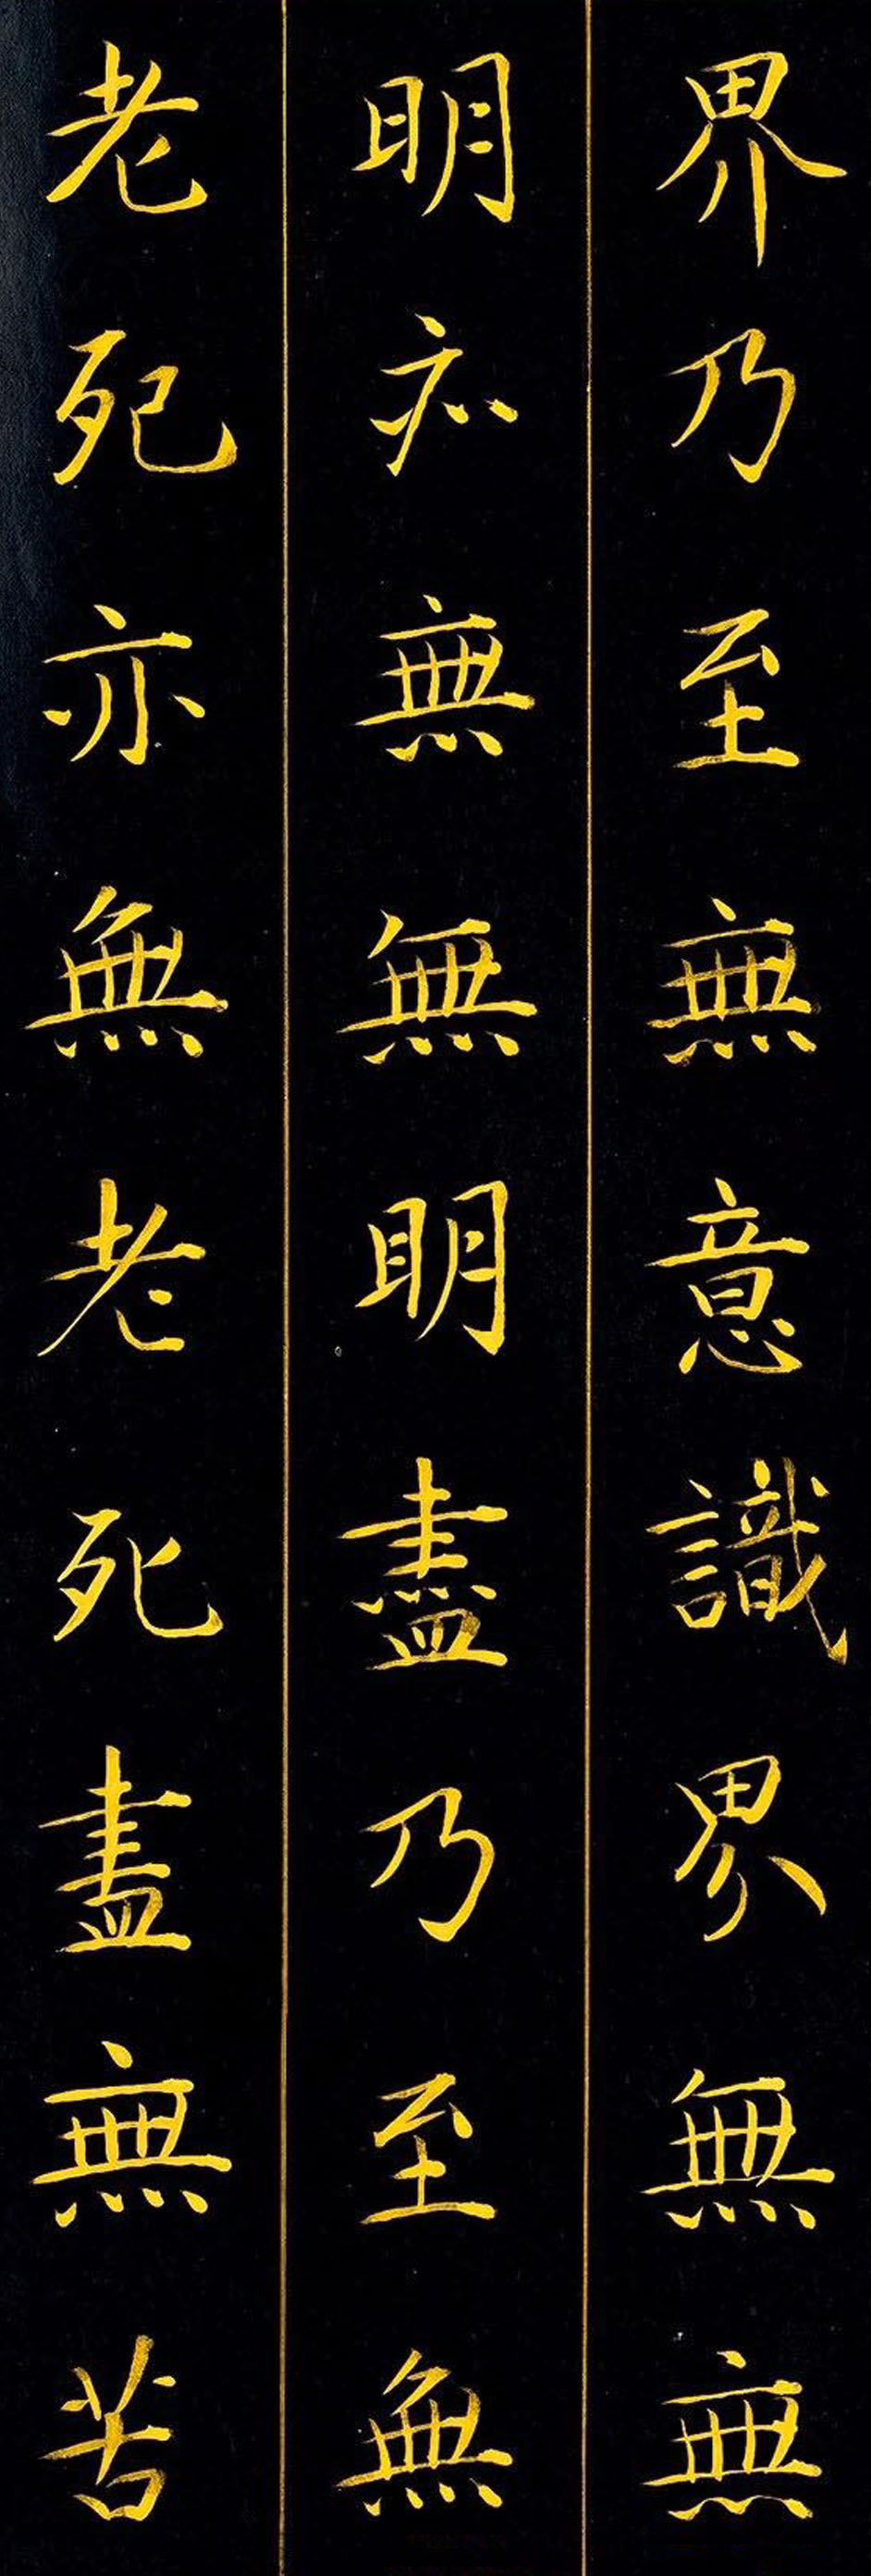 界乃至無意識界無無
明亦無無明盡乃至無
老死亦無老死盡無苦